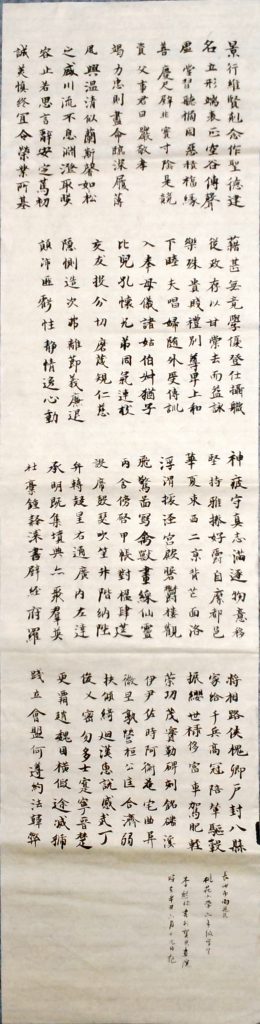 景行維賢剋念作聖德建
名立形端表正空谷傳聲
虛堂習聽禍因惡積福緣
善慶尺璧非寶寸陰是競
資父事君曰嚴敬孝
竭力忠則盡命臨深履薄
夙興溫清似蘭斯馨如松
之盛川流不息淵澄取映
容止若思言辭安定篤初
誠美慎終宜令榮業所基
藉甚無竟學優登仕攝職
從政存以甘棠去而益詠
樂殊貴賤禮別尊卑上和
下睦夫唱婦隨外受傅訓
入奉母儀諸姑伯叔猶子
比兒孔懷兄弟同氣連枝
交友投分切磨箴規仁慈
隱惻造次弗離節義廉退
顛沛匪虧性靜情逸心動
神疲守真志滿逐物意移
堅持雅操好爵自縻都邑
華夏東西二京背芒面洛
浮渭據涇宮殿盤鬱樓觀
飛驚圖寫禽獸畫綵仙靈
丙舍傍啓甲帳對楹肆筵
設席鼓瑟吹笙升階納陛
弁轉疑星右通廣內左達
承明既集墳典亦聚群英
杜稾鍾隸漆書壁經府羅
將相路俠槐卿戶封八縣
家給千兵高冠陪輦驅轂
振纓世祿侈富車駕肥輕
策功茂實勒碑刻銘磻溪
伊尹佐時阿衡奄宅曲阜
微旦孰營桓公匡合濟弱
扶傾綺迴漢惠說感武丁
俊乂密勿多士寔寧晉楚
更霸趙魏困橫假途滅虢
踐土會盟何遵約法韓弊